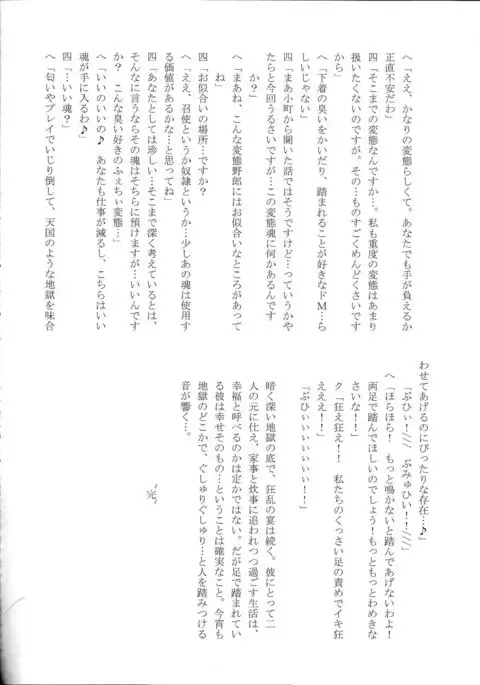 へ「ええ、かなりの変態らしくて。あなたでも手が負えるか
正直不安だわ」
四「そこまでの変態なんですか…。私も重度の変態はあまり
扱いたくないのですが。その…ものすごくめんどくさいです
から」
へ「下着の臭いをかいだり、踏まれることが好きなドM…ら
しいじゃない」
四「まあ小町から聞いた話ではそうですけど…っていうかや
たらと今回うるさいですが…この変態魂に何かあるんです
か?」
へ「まあね、こんな変態野郎にはお似合いなところがあって
ね」
四「お似合いの場所…ですか?
へ「ええ、召使というか奴隷というか…少しあの魂は使用す
る価値があるかな…と思ってね」
四「あなたとしては珍しい…そこまで深く考えているとは、
そんなに言うならその魂はそちらに預けますが…いいんです
か? こんな臭い好きのふぇちぃ変態…」
へ「いいのいいの♪ あなたも仕事が減るし、こちらはいい
魂が手に入るわ♪
四「…いい魂?」
へ「匂いやプレイでいじり倒して、天国のような地獄を味合
わせてあげるのにぴったりな存在…♪」
「ぶひぃ!/// ぶみゅひい!!///」
へ「ほらほら! もっと鳴かないと踏んであげないわよ!
両足で踏んでほしいのでしょう!もっともっとわめきな
さいな!!」
ク「狂え狂え!! 私たちのくっさい足の責めでイキ狂
えええ!!」
「ぶひぃぃぃぃぃぃぃ!!」
暗く深い地獄の底で、狂乱の宴は続く。彼にとって二
人の元に仕え、家事と炊事に追われつつ過ごす生活は、
幸福と呼べるのかは定かではない。だが足で踏まれてい
る彼は幸せそのもの…ということは確実なこと。今宵も
地獄のどこかで、ぐしゅりぐしゅり…と人を踏みつける
音が響く…。
〝完〟